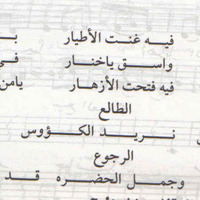 فيه غنت الأطيار بـ
واسق ياخنار فى
فيه فتحت الأزهار يامن
الطالع
نريد الكؤوس
الرجوع
وجمل الحضره قد